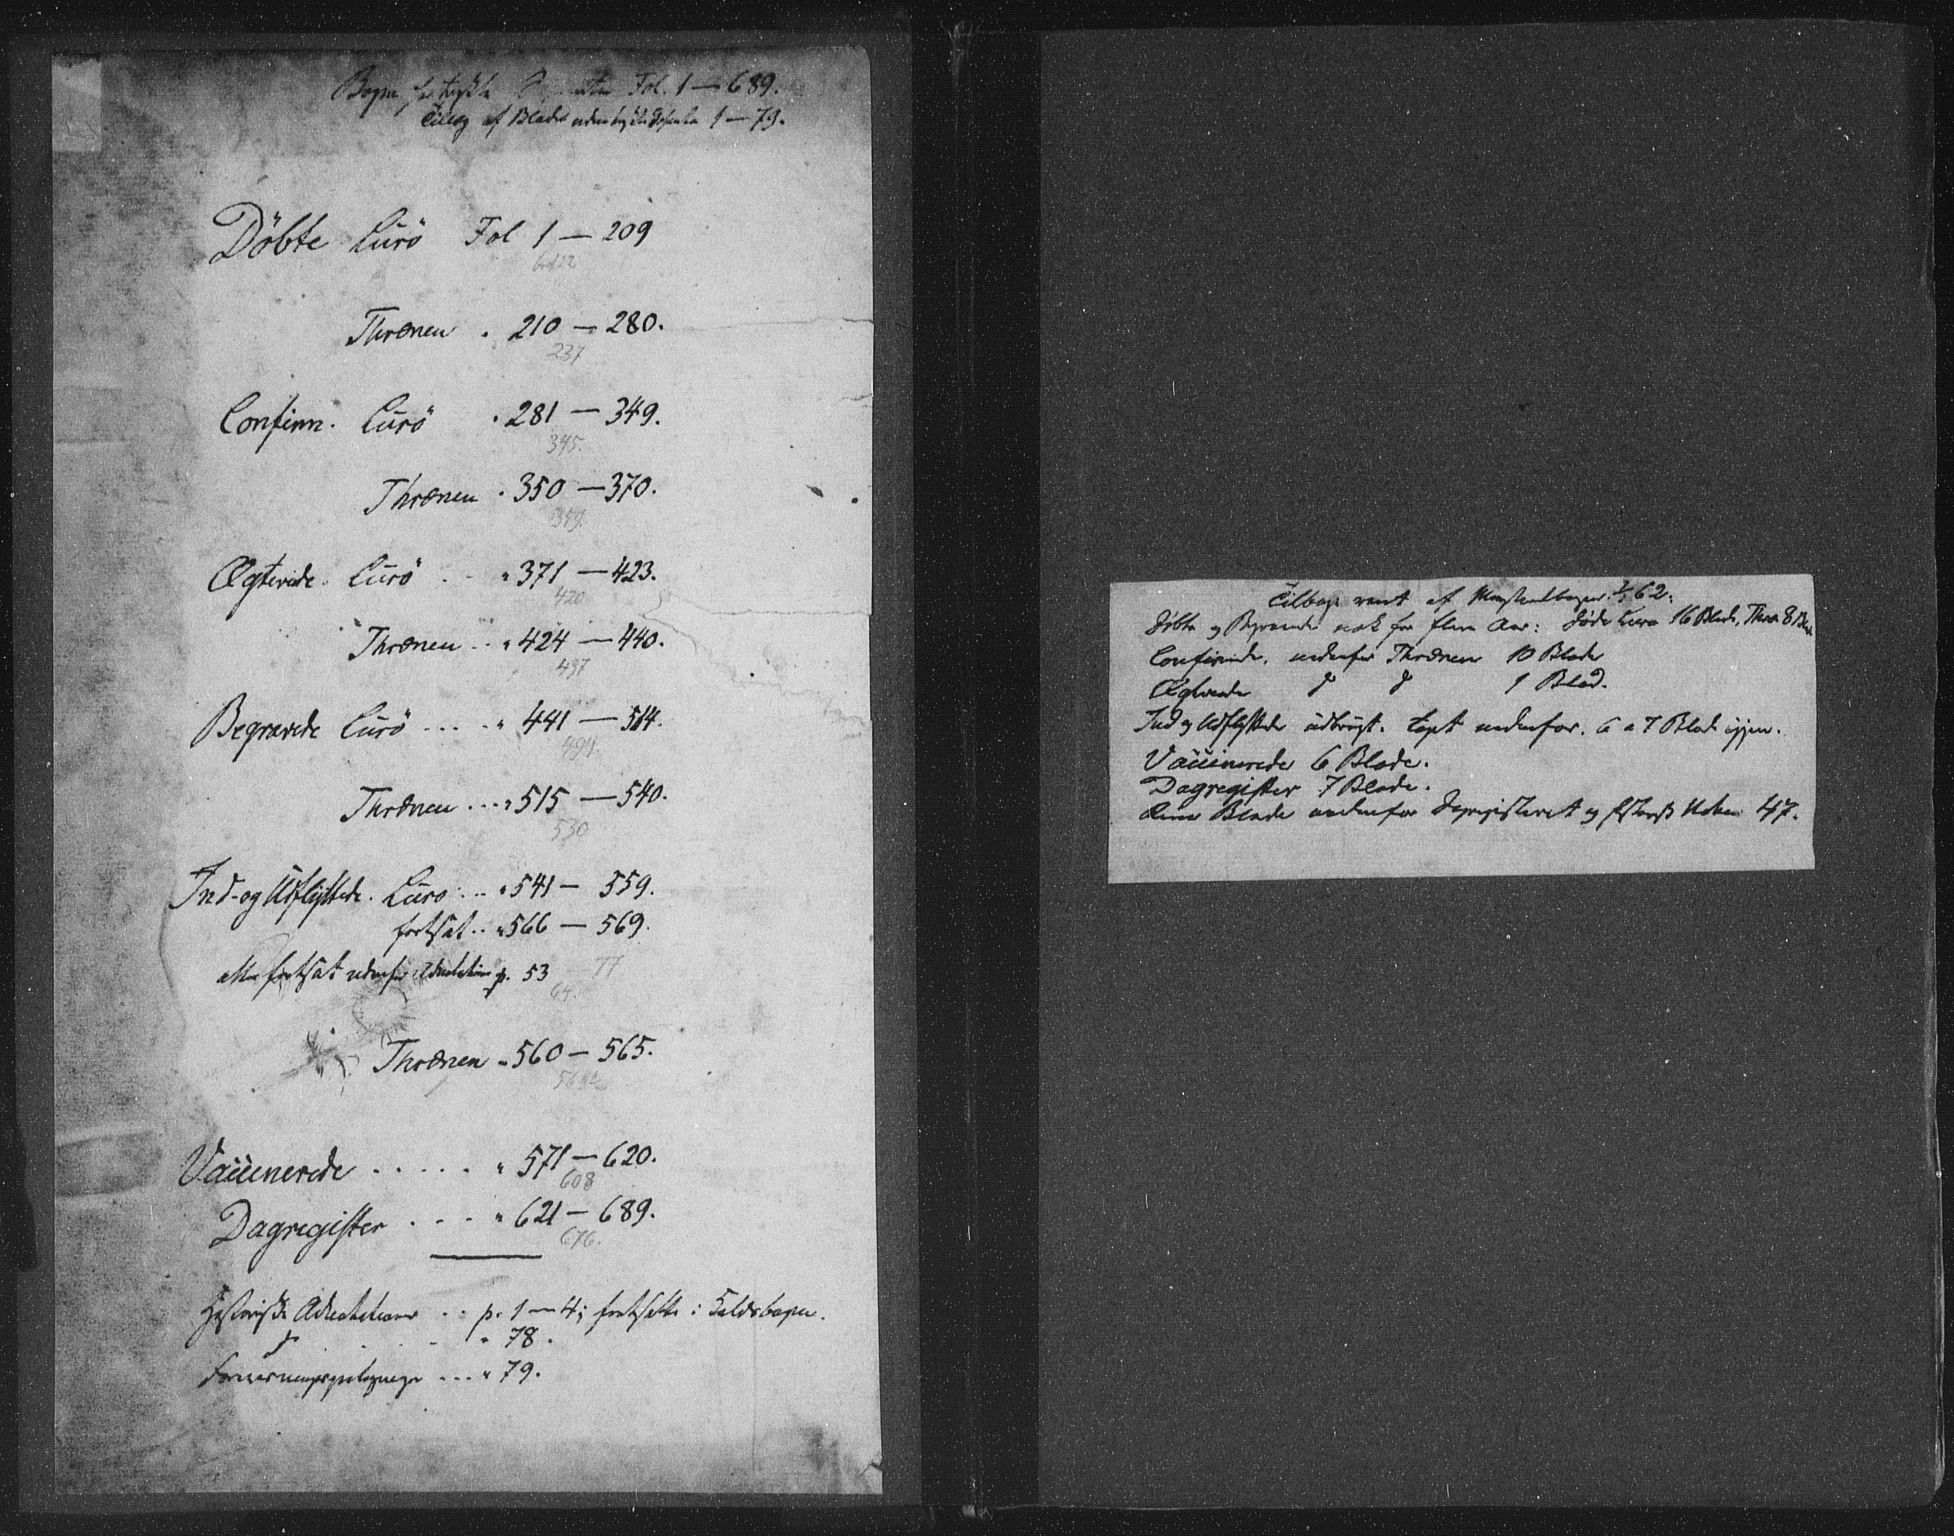 Bogen Fol. 1 — 689.
Tillæg af Blade 1 — 79.
Döbte Lurö Fol 1 — 209
Thrænen . 210 — 280.
237
Confirm. Lurö . 281 — 349.
345.
Thrænen . 350 — 370.
359.
Ægteviede. Lurö . . " 371 — 423.
420
Thrænen . . " 424 — 440.
437
Begravede Lurö . . . . " 441 — 514.
494.
Thrænen . . . " 515 — 540.
530
Ind- og Udflyttede. Lurö . . . " 541 — 559.
fortsat . . " 566 — 569.
fortsat p. 53 77
64.
Thrænen " 560 — 565.
Vaccinerede . . . . . " 571 — 620.
608
Dagregister . . . " 621 — 689.
676.
Historiske . . p. 1 — 4; fortsatte i Kaldsbogen.
" 78.
. . . " 79.
Tilbage rent af 62.
Døbte og Begravede nok for flere Aar: Lurö 16 Blade, Thræn 8
Confirmede, Thrænen 10 Blade
Ægteviede 1 Blad.
Ind og Udflyttede udbrugt. 6 a 7 Blade igjen.
Vaccinerede 6 Blade.
Dagregister 7 Blade.
Rene Blade Dagregisteret og 47.